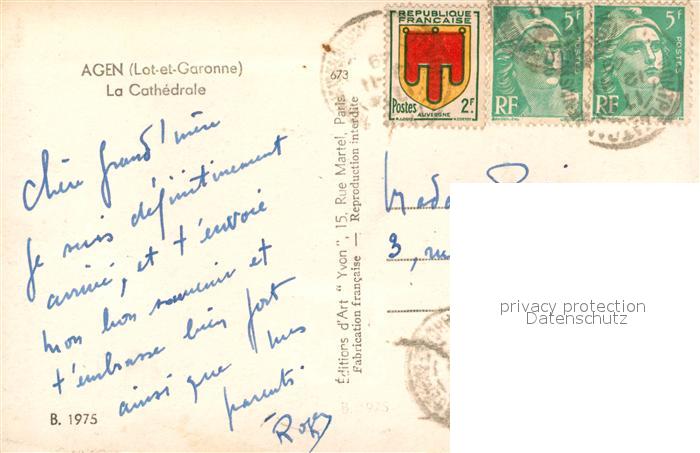 AGEN (Lot-et-Garonne)
La Cathédrale
Chère Grand'mère
Je suis définitivement
arrivé, et t'envoie
mon bon souvenir et
t'embrasse bien fort
ainsi que mes
parents.
Roger
B. 1975
673
Éditions d'Art "Yvon", 15, Rue Martel, Paris
Fabrication française — Reproduction interdite
REPUBLIQUE
FRANÇAISE
Postes 2F
AUVERGNE
5F
POSTES
RF
5F
POSTES
RF
3, 
B. 1975
privacy protection
Datenschutz